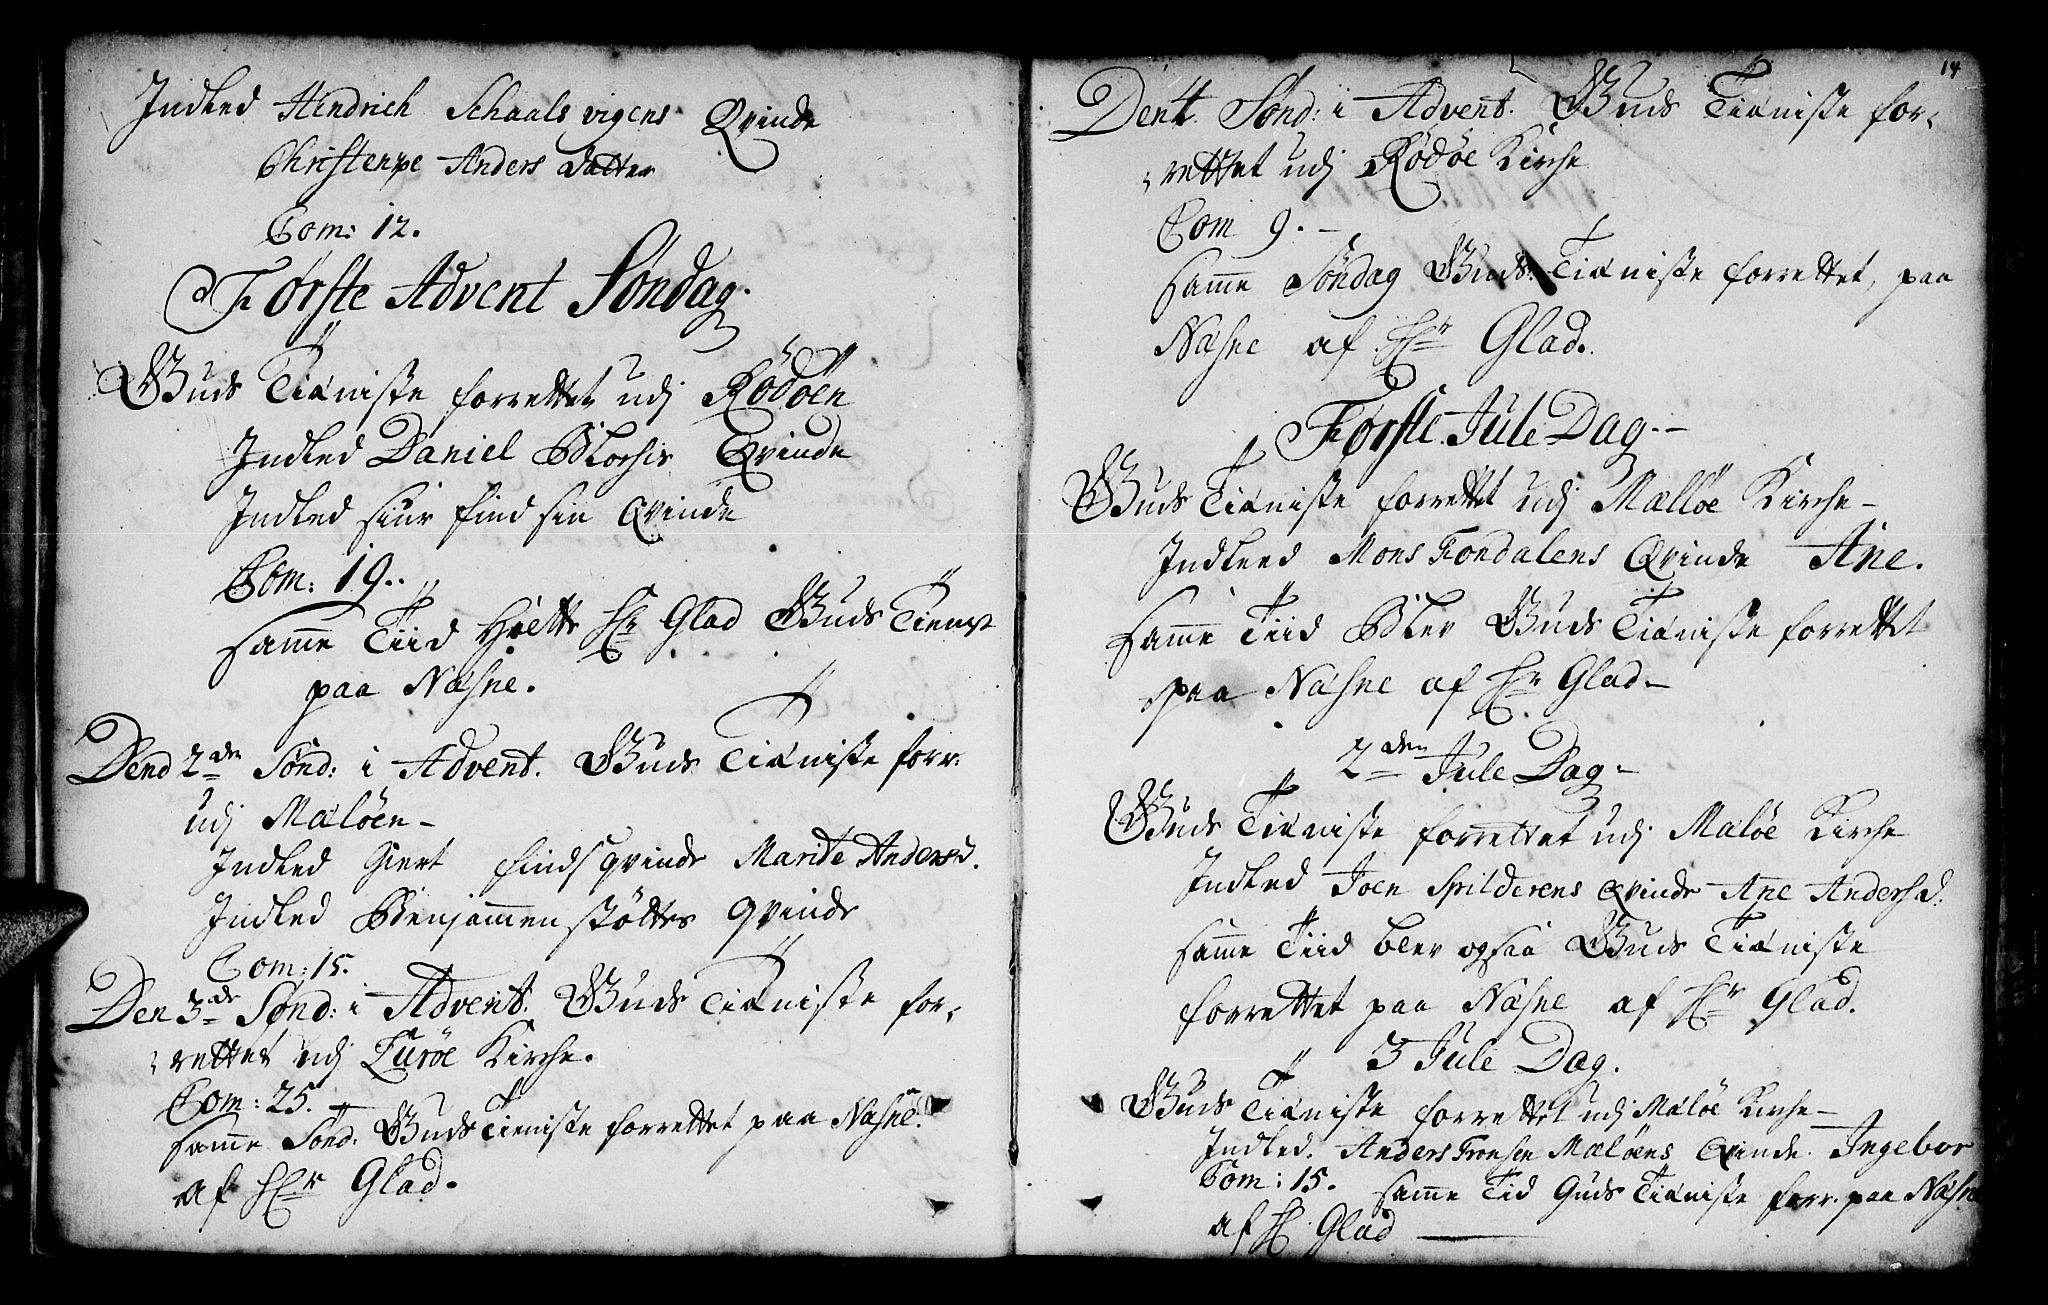 Indled Hendrich Schaalsvigens Qvinde
Christenpe Anders Datter
Com: 12.
Første Advent Søndag.
Guds Tieniste forrettet udj Rödöen
Indled Daniel Blochis Qvinde
Indled siur find sin Qvinde
Com: 19.
samme Tiid Hoelts Hr Glad Guds Tienist
paa Næsne.
Dend 2den Sönd: i Advent. Guds Tieniste forr:
udj Meløen -
Indled Giert finds qvinde Marite Andersd.
Indled Benjammen støttes qvinde
Com: 15.
Den 3de Sønd: i Advent. Guds Tieniste for-
rettet udj Lurøe Kirche.
Com: 25. -
samme Sönd. Guds Tieniste forrettet paa Næsne.
af Hr Glad.
14
Den 4. Sönd: i Advent. Guds Tieniste for-
rettet udj Rödöe Kirche
Com 9. -
samme Söndag Guds Tieniste forrettet, paa
Næsne af Hr Glad.
Første Jule Dag. -
Guds Tieniste forrettet udj Mælløe Kirche -
Indleed Mons Fondalens Qvinde Ane.
samme Tiid Blev Guds Tieniste forrettet
paa Næsne af Hr Glad -
2den Jule Dag -
Guds Tieniste forrettet udj Meløe Kirche
Indled Joen Spilderens Qvinde Ane Andersd:
samme Tiid blev ogsaa Guds Tieniste
forrettet paa Næsne af Hr Glad.
3 Jule Dag.
Guds Tieniste forrettet udj Meløe Kirche -
Indled. Anders Tronsen Meløens Qvinde. Ingebor
Com: 15. samme Tid Guds Tieniste forr. paa Næsne
af H Glad